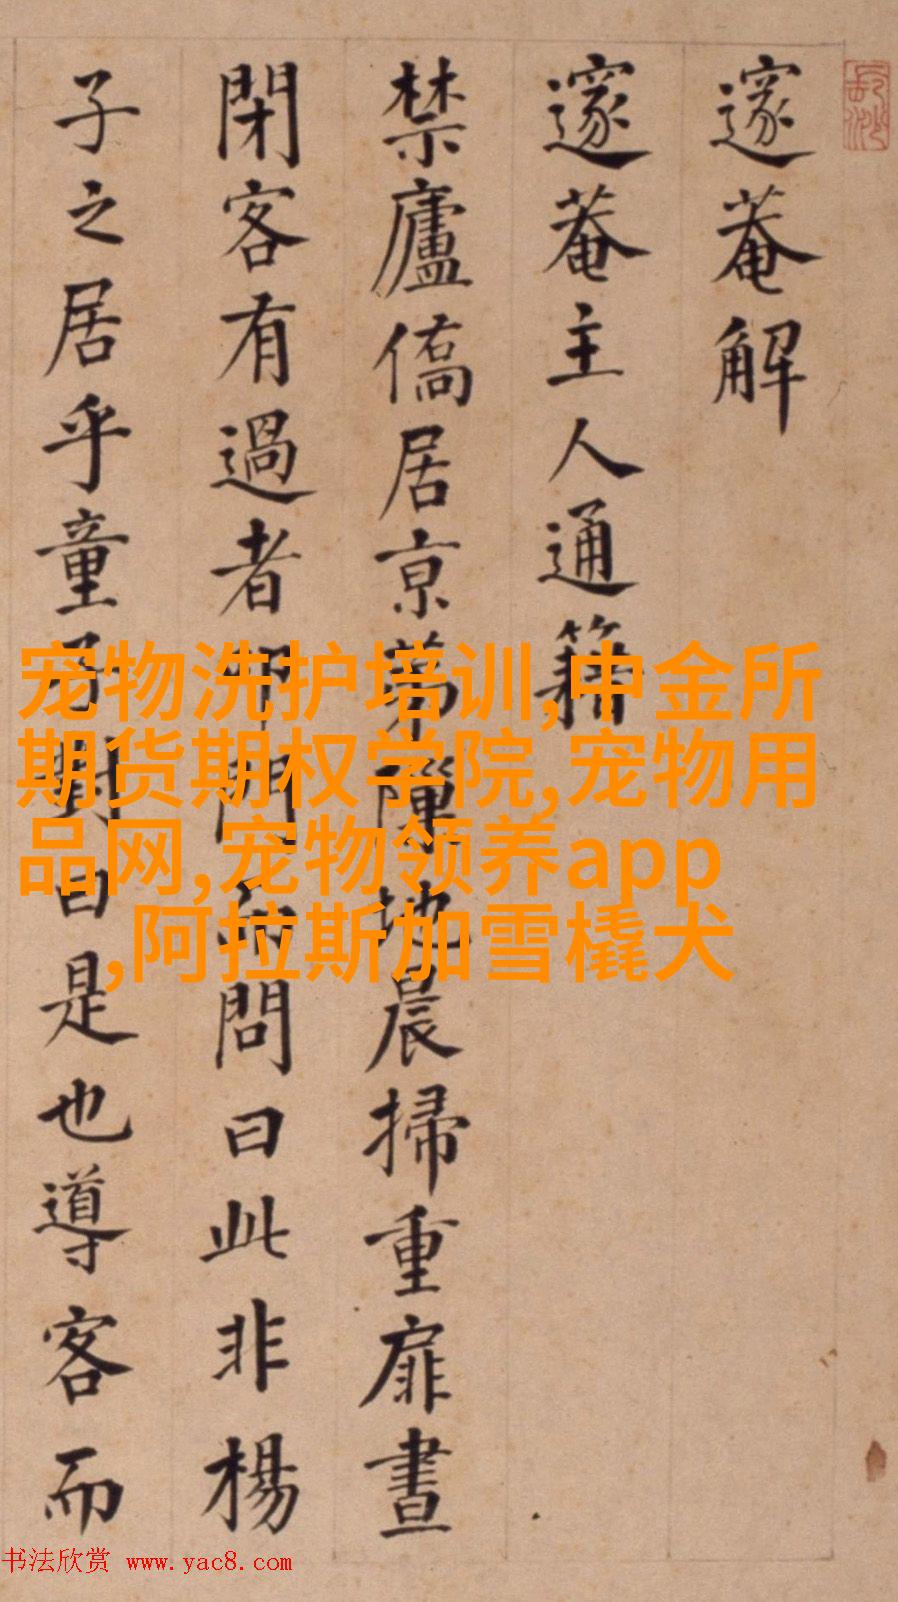 邃菴解
邃菴主人通籍
禁廬僑居京第隙地晨掃重扉晝
閉客有過者叩門而問曰此非楊
子之居乎童子對曰是也導客而
宠物洗护培训,中金所
期货期权学院,宠物用
品网,宠物领养app
,阿拉斯加雪橇犬
书法欣赏 www.yac8.com